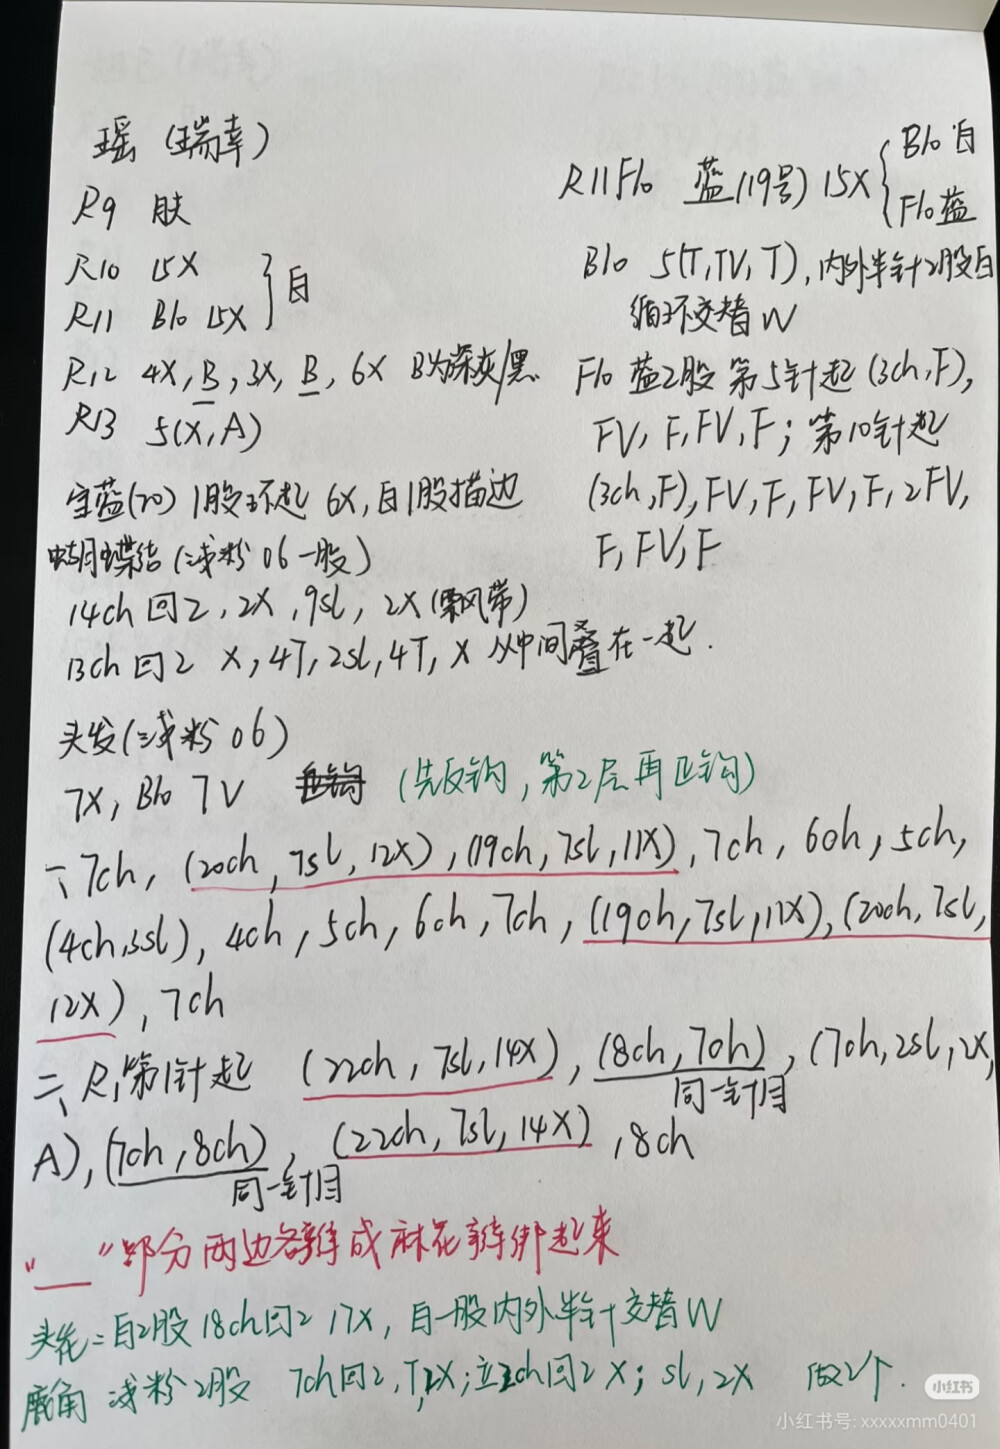 瑶 (瑞幸)
R9 肤
R10 15X
R11 Blo 15X } 白
R12 4X, B, 3X, B, 6X B为深灰/黑
R13 5(X, A)
宝蓝(20) 1股环起 6X, 白1股描边
蝴蝶结 (浅粉06一股)
14ch 回2, 2X, 9sl, 2X (飘带)
13ch 回2 X, 4T, 2sl, 4T, X 从中间叠在一起.
R11 Flo 蓝(19号) 15X { Blo 白
Flo 蓝
Blo 5(T, TV, T), 内外半针2股白
循环交替W
Flo 蓝2股 第5针起 (3ch, F),
FV, F, FV, F; 第10针起
(3ch, F), FV, F, FV, F, 2FV,
F, FV, F
头发 (浅粉06)
7X, Blo 7V (先反钩, 第2层再正钩)
一、7ch, (20ch, 7sl, 12X), (19ch, 7sl, 11X), 7ch, 6ch, 5ch,
(4ch, 3sl), 4ch, 5ch, 6ch, 7ch, (19ch, 7sl, 11X), (20ch, 7sl,
12X), 7ch
二、R1第1针起 (22ch, 7sl, 14X), (8ch, 7ch), (7ch, 2sl, 2X,
同一针目
A), (7ch, 8ch), (22ch, 7sl, 14X), 8ch
同一针目
"__"部分两边各辫成麻花辫绑起来
头花=白2股 18ch回2 17X, 白一股内外半针交替W
鹿角 浅粉2股 7ch回2, T, 2X; 立3ch回2 X; sl, 2X 做2个.
小红书
小红书号: xxxxxmm0401